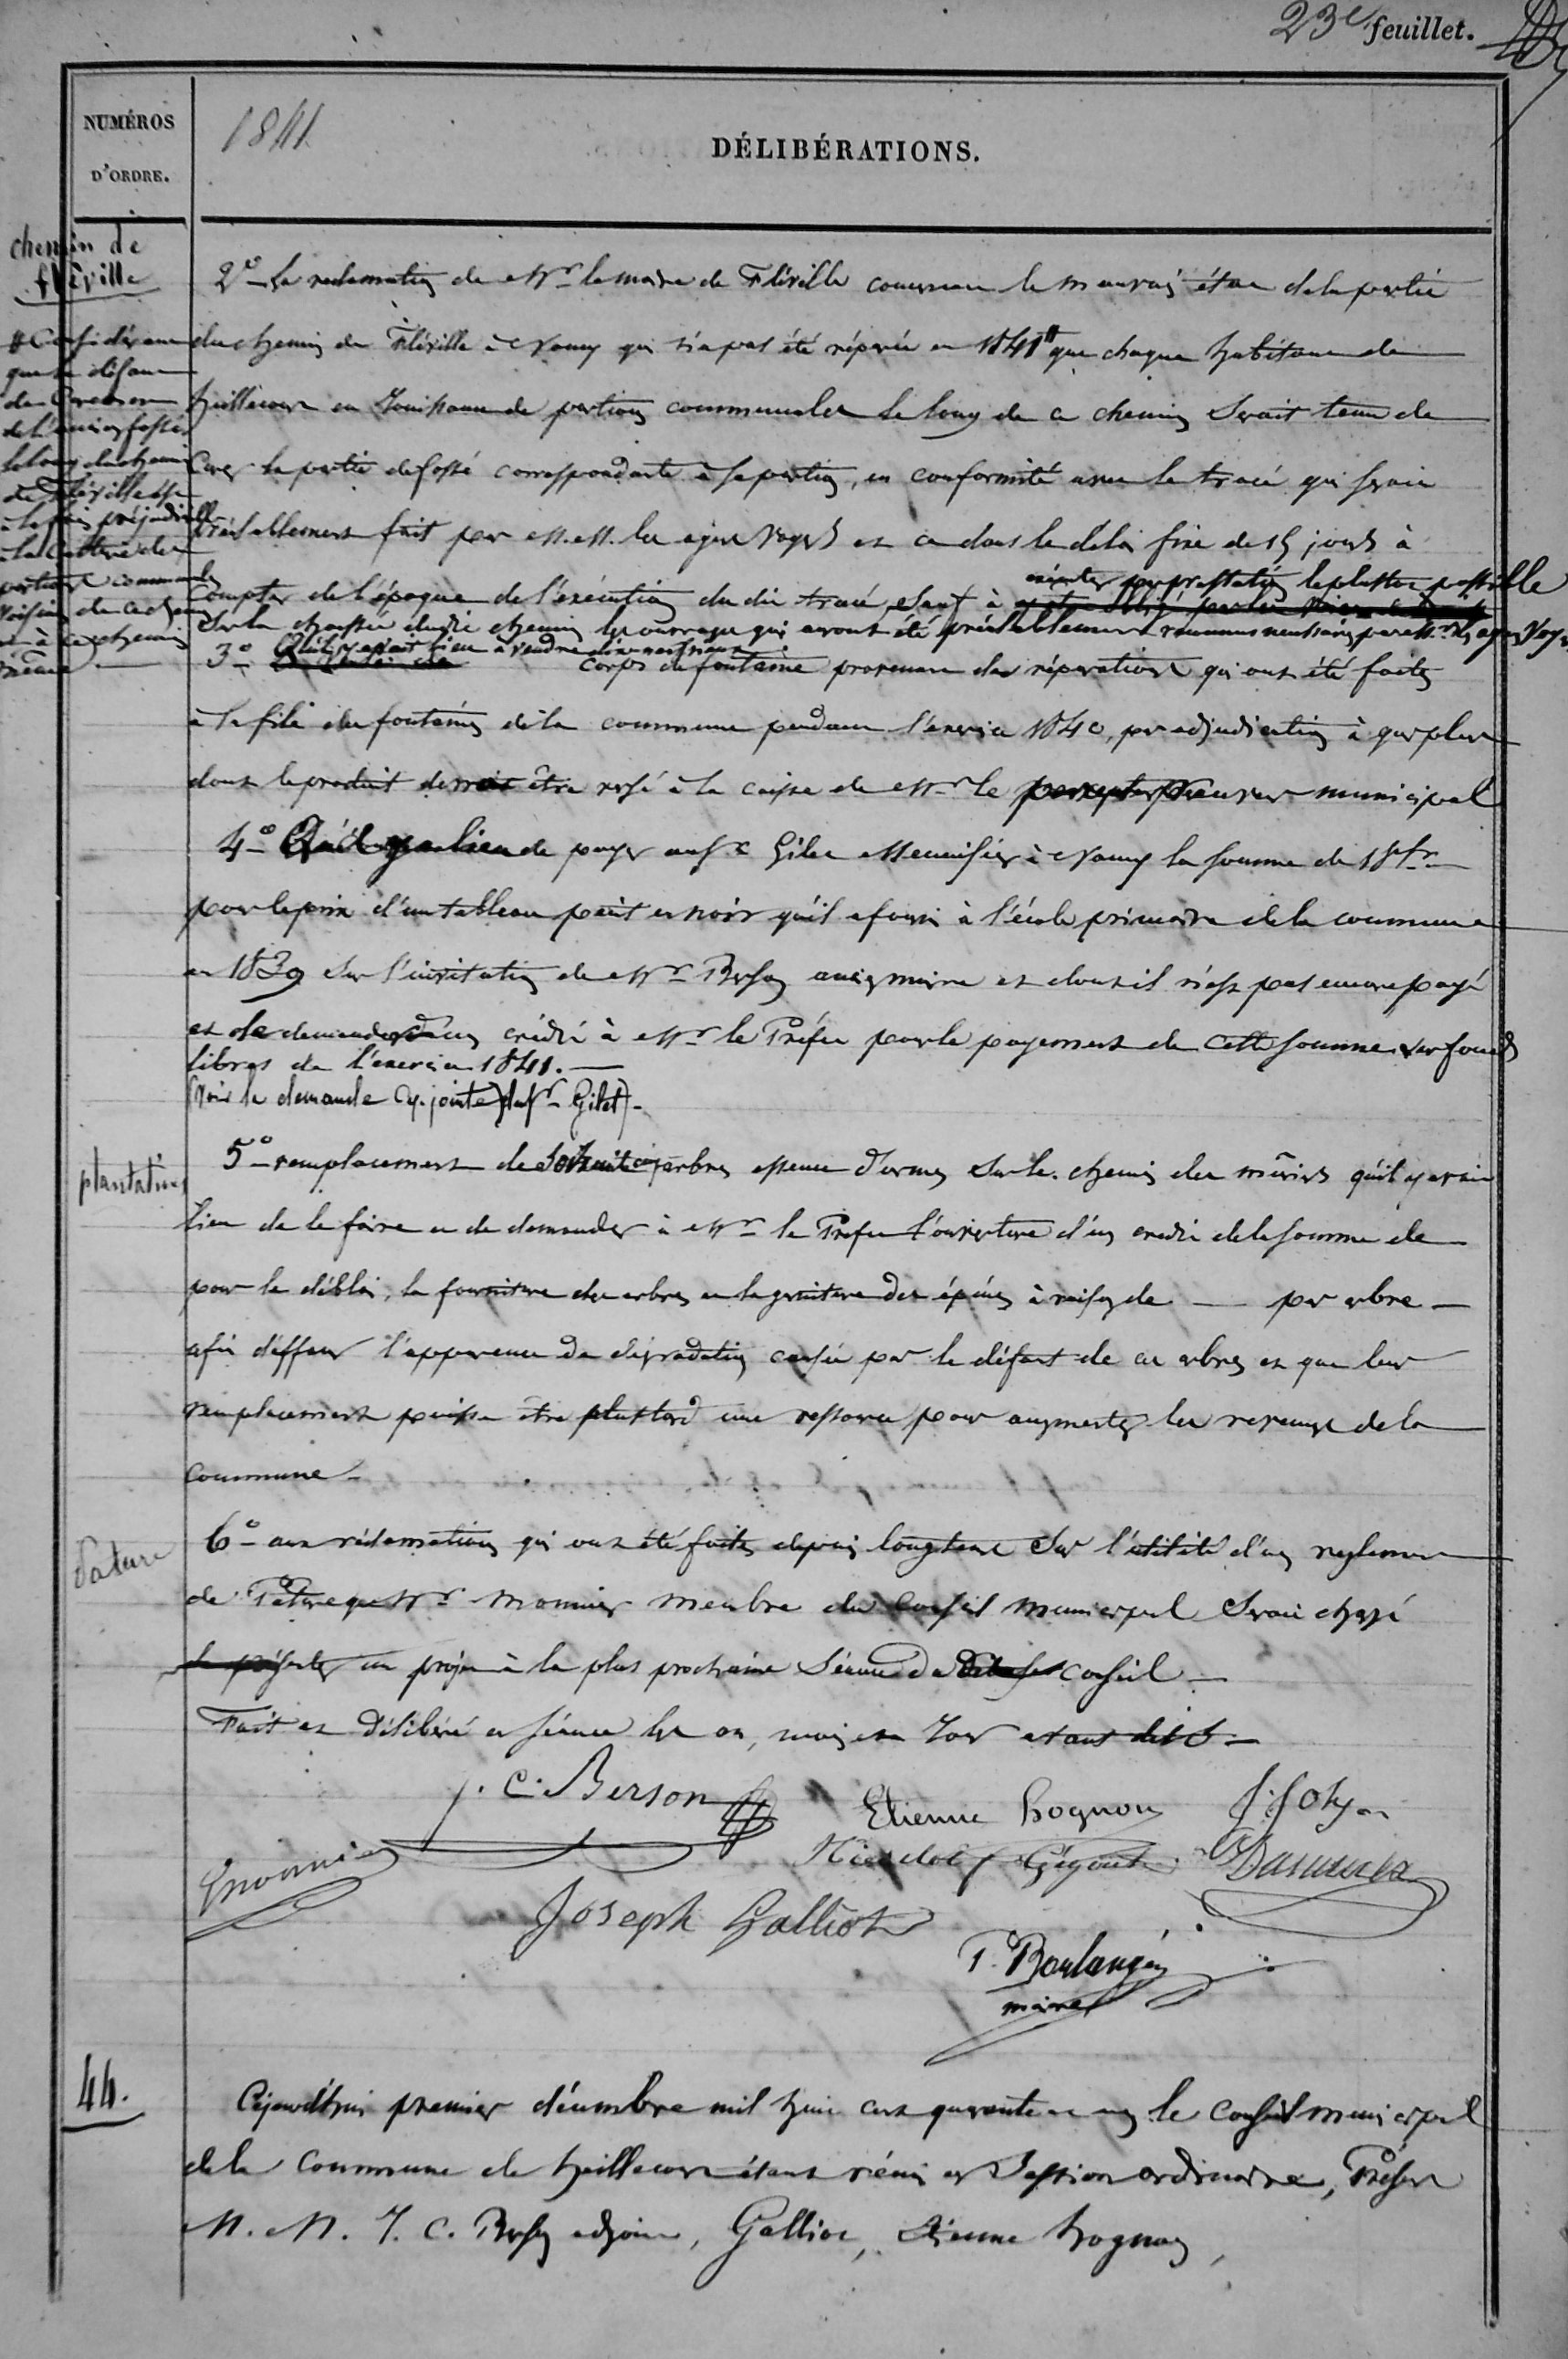 23e feuillet.
NUMÉROS
D'ORDRE.
1841
DÉLIBÉRATIONS.
chemin de
fléville
# Considérant
que le défaut
de Creuson
de l'ancien fossé
le long du chemin
de Fléville est
à la fois préjudiciable
à la culture des
portions communales
voisines de ce chemin
et à ce chemin
même
2º La reclamation de Mr le maire de Fléville concernant le mauvais état de la partie
du chemin de Fléville à Nancy qui n'a pas été réparée en 1841 # que chaque habitant de
heillecourt en Jouissance de portions communales le long de ce chemin serait tenu de
Curer la partie de fossé correspondante à sa portion, en conformité avec le tracé qui serait
préalablement fait par M.M. les agens voyers et ce dans le délai fixé de 15 jours à
compter de l'époque de l'exécution du dit tracé, sauf à
exécuter par prestation le plustot possible
sur la chaussée dudit chemin les ouvrages qui auront été préalablement reconnus nécessaires par M.rs les agens voyers
3º Qu'il y avait lieu à vendre dix-neuf vieux
corps de fontaine provenant des réparations qui ont été faites
à la file des fontaines de la commune pendant l'exercice 1840, par adjudication à qui plus
dont le produit devrait être versé à la caisse de Mr le receveur municipal
4º Qu'il y a lieu de payer au Sr Gilet Menuisier à Nancy la somme de 15 fr
pour le prix d'un tableau peint en noir qu'il a fourni à l'école primaire de la commune
en 1839 sur l'invitation de Mr Berson ancien maire et dont il n'est pas encore payé
et de demander un crédit à Mr le Préfet pour le payement de cette somme sur fonds
libres de l'exercice 1841.
(Voir la demande cy-jointe du Sr Gilet).
plantations
5º remplacement de soixante cinq arbres essence d'ormes sur le chemin des mûriers qu'il y avait
lieu de le faire et de demander à Mr le Préfet l'ouverture d'un crédit de la somme de
pour le déblai, la fourniture des arbres et la garniture des épines à raison de — par arbre —
afin d'effacer l'apparence de dégradation causée par le défaut de ces arbres et que leur
remplacement puisse être plustard une ressource pour augmenter les revenus de la
commune
Pature
6º aux réclamations qui ont été faites depuis longtems sur l'utilité d'un reglement
de Pature que Mr Monnier membre du Conseil municipal serait chargé
de présenter un projet à la plus prochaine séance du conseil
Fait et Délibéré en séance les an, mois et Jour avant dits
J. C. Berson
Etienne hognon
J. Joly
Gmonnier
Hindelot
Gégout
Joseph Galliot
P. Boulangé
maire
44.
Cejourd'hui premier décembre mil huit cent quarante et un le Conseil municipal
de la Commune de heillecourt étant réuni en Session ordinaire, Présens
M. M. J. C. Berson adjoint, Galliot, Etienne hognon,